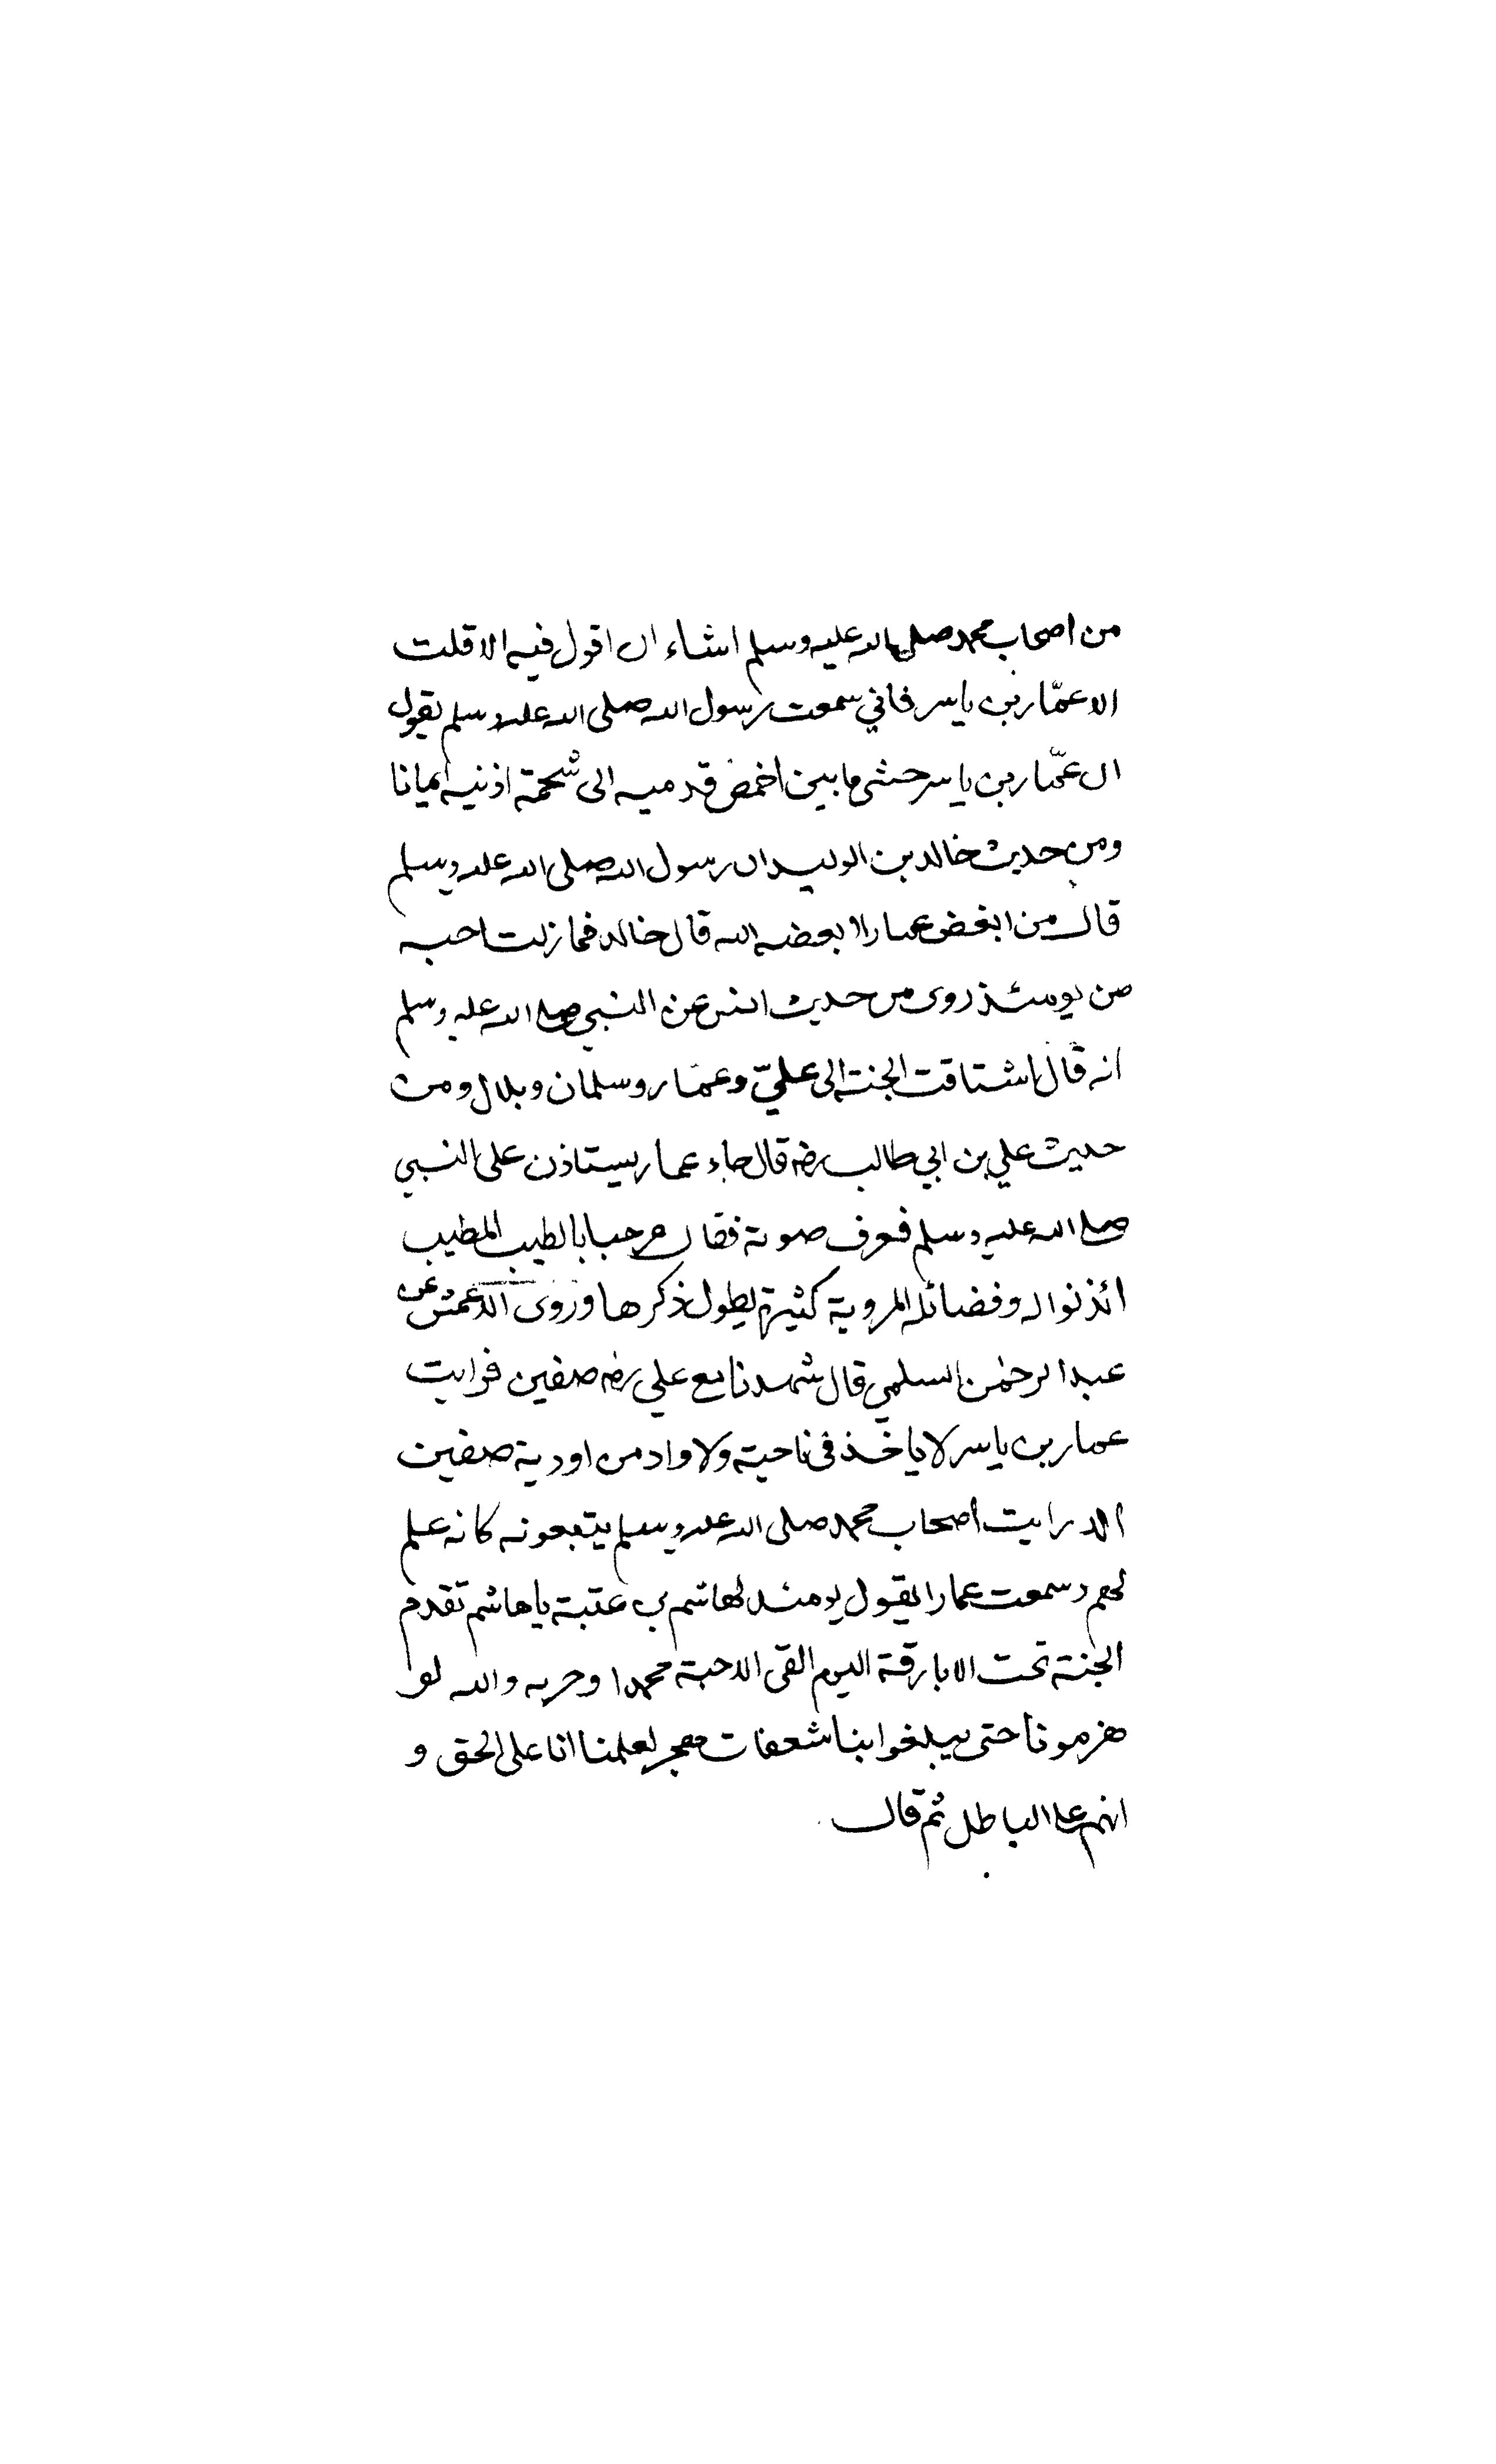 من اصحاب محمد صلى الله عليه وسلم اشاء ان اقول فيه الا قلت
الا عمّار بن ياسر فاني سمعت رسول الله صلى الله عليه وسلم يقول
ان عمّار بن ياسر حشى ما بين اخمص قدميه الى شحمة اذنيه ايمانا
ومن حديث خالد بن الوليد ان رسول الله صلى الله عليه وسلم
قال من ابغض عمارا ابغضه الله قال خالد فما زلت احبه
من يومئذ روى من حديث انس عن النبي صلى الله عليه وسلم
انه قال اشتاقت الجنة الى عليّ وعمّار وسلمان وبلال ومن
حديث علي بن ابي طالب رضه قال جاء عمار يستاذن على النبي
صلى الله عليه وسلم فعرف صوته فقال مرحبا بالطيب المطيب
ائذنوا له وفضائله المروية كثيرة يطول ذكرها وروى الاعمش عن
عبد الرحمٰن السلمي قال شهدنا مع علي رضه صفين فرايت
عمار بن ياسر لا ياخذ في ناحية ولا واد من اودية صفين
الا رايت اصحاب محمد صلى الله عليه وسلم يتبعونه كانه علم
لهم وسمعت عمارا يقول يومئذ لهاشم بن عتبة يا هاشم تقدم
الجنة تحت الابارقة اليوم القى الاحبة محمدا وحزبه والله لو
هزمونا حتى يبلغوا بنا شعفات هجر لعلمنا انا على الحق و
انهم على الباطل ثم قال